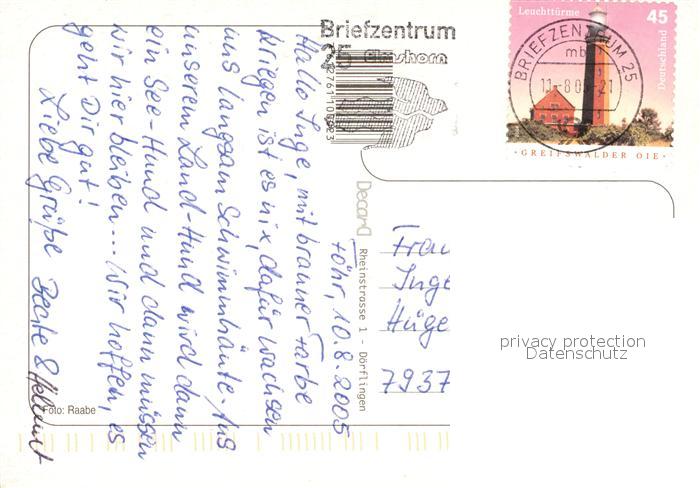 Briefzentrum
25 Elmshorn
Leuchttürme
45
Deutschland
BRIEFZENTRUM 25
mb
11-8.05-21
·GREIFSWALDER OIE·
Föhr, 10.8.2005
Hallo Inge, mit brauner Farbe
kriegen ist es nix, dafür wachsen
uns langsam Schwimmhäute. Aus
unserem Land-Hund wird dann
ein See-Hund und dann müssen
wir hier bleiben... Wir hoffen, es
geht Dir gut!
Liebe Grüße Beate & Hellmut
DecarD
Rheinstrasse 1 - Dörflingen
Frau
Inge
Hüge
7937
privacy protection
Datenschutz
Foto: Raabe